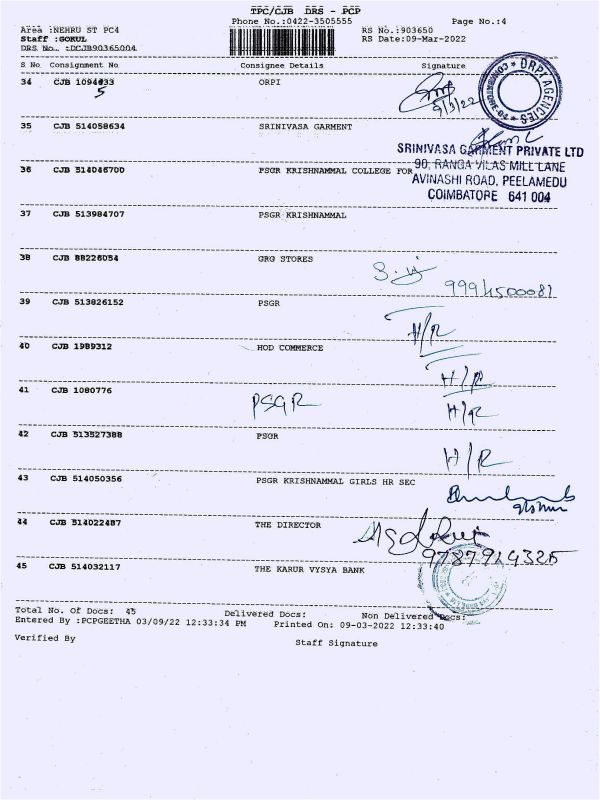 TPC/CJB DRS - PCP
Phone No.:0422-3505555 Page No.:4
Area :NEHRU ST PC4 RS No.:903650
Staff :GOKUL RS Date:09-Mar-2022
DRS No.. :DCJB90365004
S No Consignment No Consignee Details Signature
34 CJB 1094533 ORPI
9/3/22
ORPI AGENCIES * COIMBATORE-04 *
35 CJB 514058634 SRINIVASA GARMENT
SRINIVASA GARMENT PRIVATE LTD
36 CJB 514046700 PSGR KRISHNAMMAL COLLEGE FOR
90, RANGA VILAS MILL LANE
AVINASHI ROAD, PEELAMEDU
COIMBATORE 641 004
37 CJB 513984707 PSGR KRISHNAMMAL
38 CJB 88226054 GRG STORES
39 CJB 513826152 PSGR
H/R
40 CJB 1989312 HOD COMMERCE
H/R
41 CJB 1080776 PSGR H/R
42 CJB 513527388 PSGR
H/R
43 CJB 514050356 PSGR KRISHNAMMAL GIRLS HR SEC
44 CJB 514022487 THE DIRECTOR
9787914325
45 CJB 514032117 THE KARUR VYSYA BANK
Total No. Of Docs: 45 Delivered Docs: Non Delivered Docs:
Entered By :PCPGEETHA 03/09/22 12:33:34 PM Printed On: 09-03-2022 12:33:40
Verified By Staff Signature